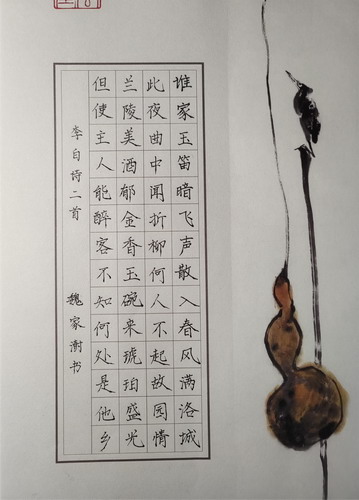 谁家玉笛暗飞声散入春风满洛城
此夜曲中闻折柳何人不起故园情
兰陵美酒郁金香玉碗来琥珀盛光
但使主人能醉客不知何处是他乡
李白诗二首
魏家澍书